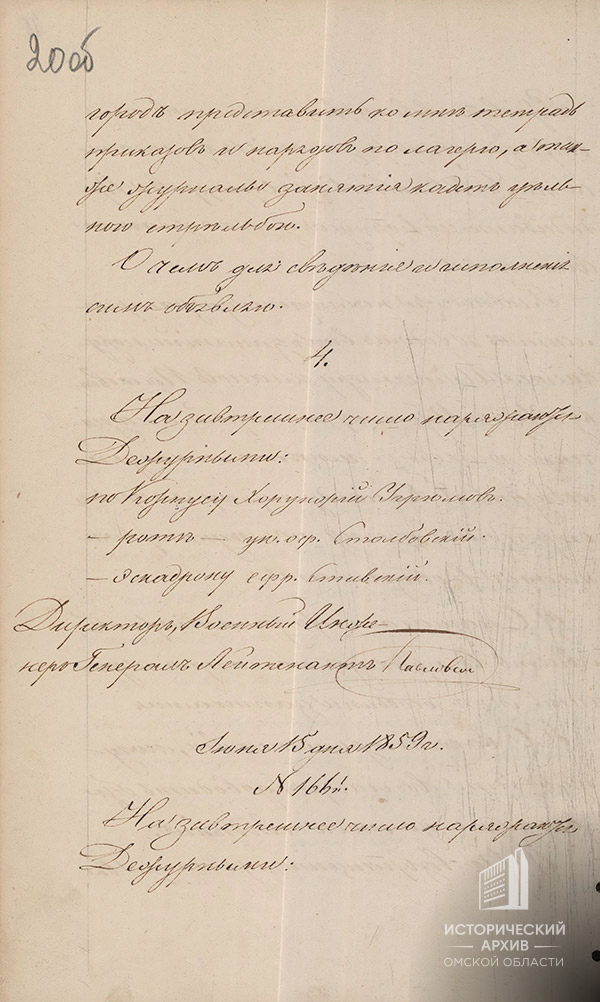 20об
городъ представить ко мнѣ тетрадь
приказовъ и нарядовъ по лагерю, а так-
же журналъ занятія кадетъ цѣль-
ною стрѣльбою.
О чемъ для свѣдѣнія и исполненія
симъ объявляю.
4.
На завтрешнее число наряжаются
Дежурными:
по Корпусу Хорунжій Угрюмовъ.
— ротѣ — ун. оф. Столбовскій.
— эскадрону ефр. Ставскій.
Директоръ, Военный Инже-
неръ Генералъ Лейтенантъ Павловскій
Іюня 15 дня 1859 г.
№ 166й.
На завтрешнее число наряжаются
Дежурными:
ИСТОРИЧЕСКИЙ
АРХИВ
ОМСКОЙ ОБЛАСТИ